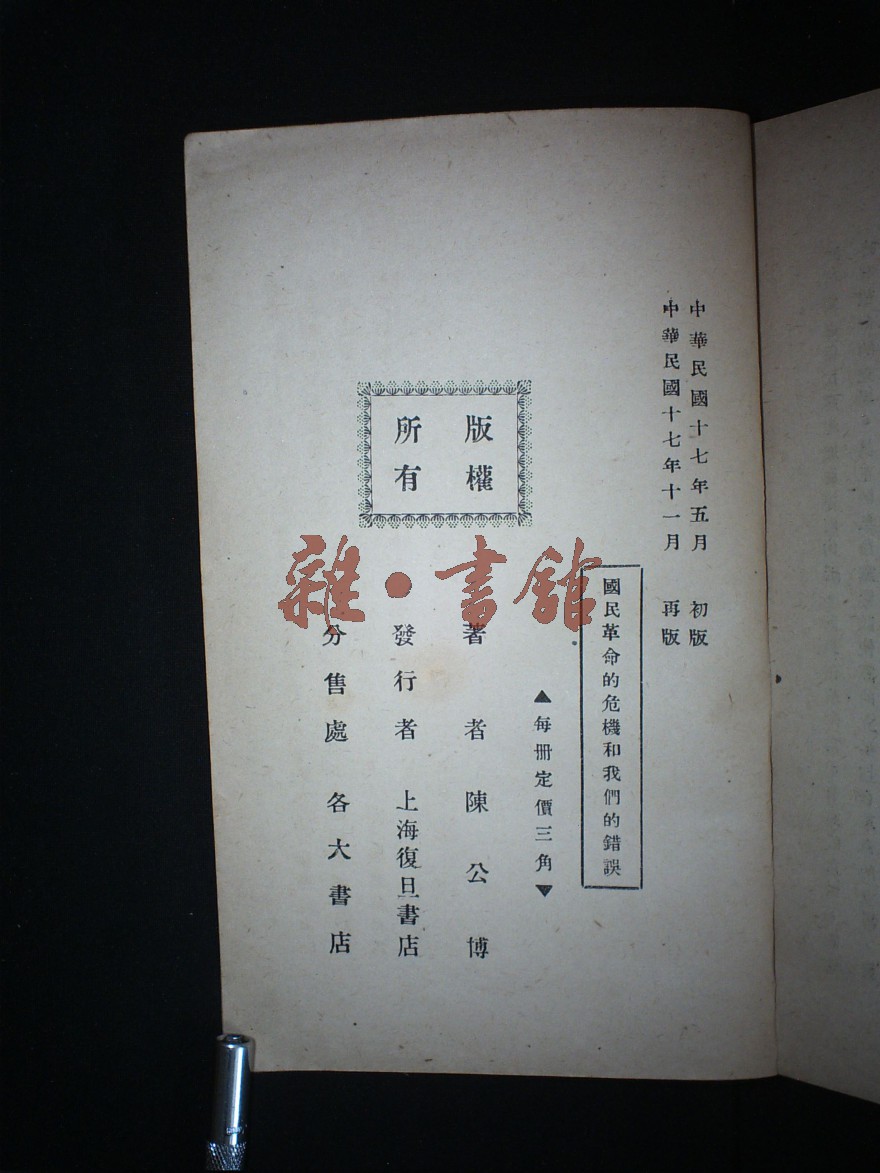 中華民國十七年五月 初版
中華民國十七年十一月 再版
國民革命的危機和我們的錯誤
▲每冊定價三角▼
版權
所有
著者 陳公博
發行者 上海復旦書店
分售處 各大書店
雜·書館